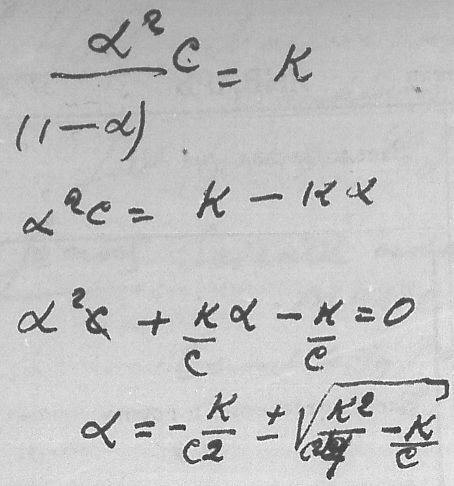 α²c / (1-α) = K
α²c = K - Kα
α² + K/c α - K/c = 0
α = - K/c2 ± √(K²/c²4 - K/c)